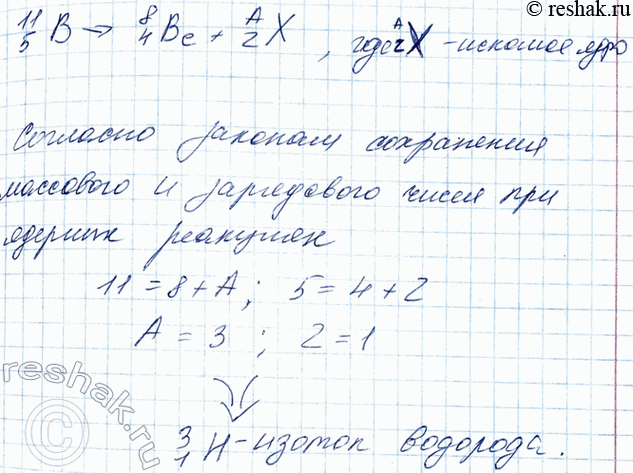 © reshak.ru
¹¹₅B → ⁸₄Be + ᴬ₂X, где ᴬ₂X - искомое ядро
Согласно законам сохранения
массового и зарядового чисел при
ядерных реакциях
11 = 8 + A; 5 = 4 + Z
A = 3; Z = 1
⇓
³₁H - изотоп водорода.
© reshak.ru